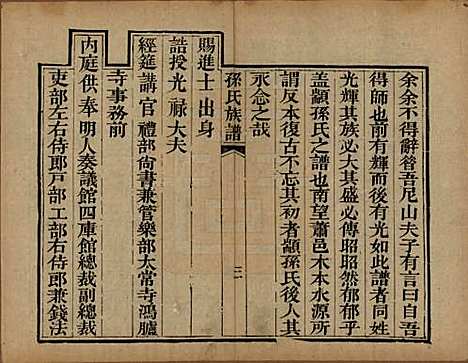 余余不得辭昝吾尼山夫子有言曰自吾
得師也前有輝而後有光如此譜者同姓
光輝其族必大其盛必傳昭昭然郁郁乎
盖顓孫氏之譜也南望蕭邑木本水源所
謂反本復古不忘其初者顓孫氏後人其
永念之哉
孫氏族譜
二
賜進士出身
誥授光祿大夫
經筵講官禮部尙書兼管樂部太常寺鴻臚
寺事務前
內庭供奉明人奏議館四庫館總裁副總裁
吏部左右侍郎戶部工部右侍郎兼錢法